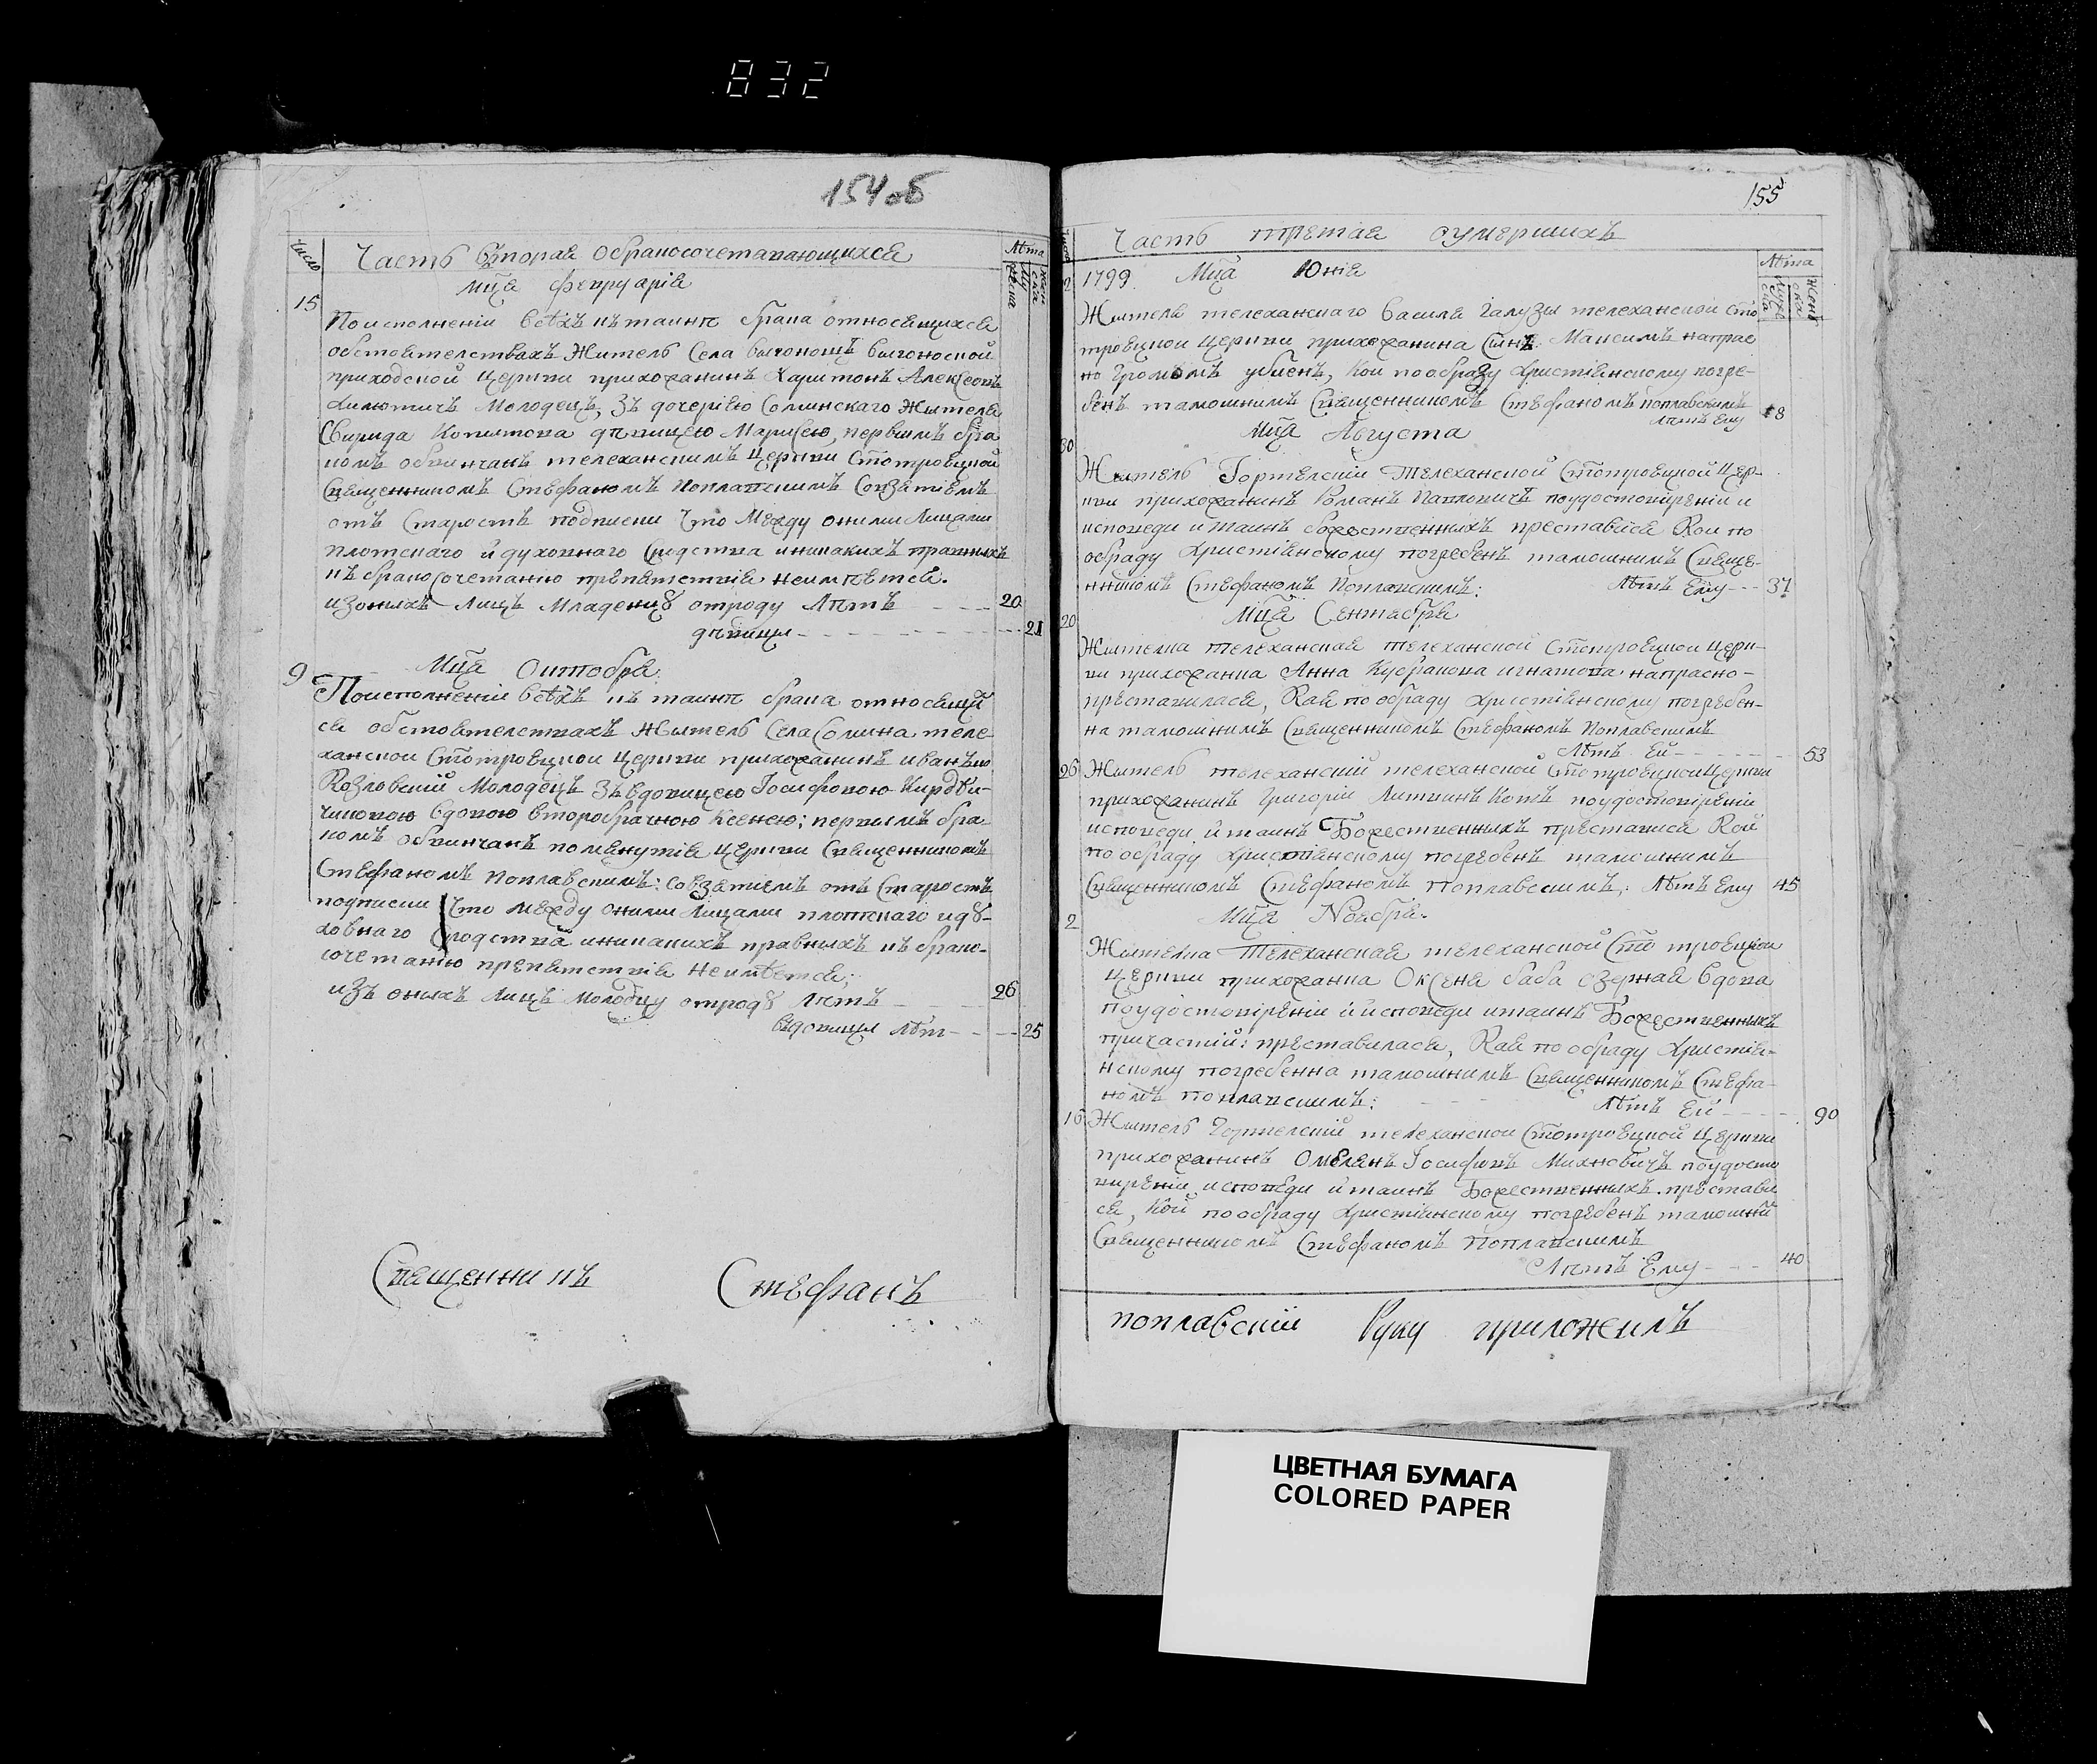 832
154 об
Число
Часть вторая обракосочетавающихся
Лѣта
Мца февруаріа
15
По исполненіи всѣхъ къ таинѣ брака относящихся
обстоятелствахъ Житель Села выгонощъ выгоноской
приходской Церкви прихожанинъ Харитонъ Алексеовъ
Молодецъ, зъ дочерію Соминскаго Жителя
Свирида Копытова дѣвицею Марисею, первымъ бра
комъ обвинчанъ телеханскимъ Церкви Стотроецкой
Священникомъ Стефаномъ Поплавскимъ Совзятіемъ
отъ Старостъ подписки что Между оними Лицами
плотскаго и духовнаго Сродства иникакихъ правныхъ
къ бракосочетанію препятствія неимѣется.
изонихъ Лицъ Младенцу отроду Лѣтъ 20
дѣвицы 21
Мца Октобра
9
Поисполненіи всѣхъ къ таинѣ брака относящи
ся обстоятелствахъ Житель Села Сомина теле
ханской Стотроецкой Церкви прихожанинъ иванъ
Козловскій Молодецъ Зъ вдовицею Іосифовою
вдовою второбрачною Ксенею; первымъ бра
комъ обвинчанъ помянутія Церкви Священникомъ
Стефаномъ Поплавскимъ: совзятіемъ отъ Старостъ
подписки что между оними Лицами плотскаго и ду
ховнаго Сродства иникакихъ правныхъ къ брако
сочетанію препятствія Неимѣется;
изъ онихъ Лицъ Молодцу отроду лѣтъ 26
вдовици лѣт 25
Священникъ Стефанъ
155
Часть третая оумершихъ
Лѣта
2 1799. Мца Юніа
Жителя телеханскаго Василя Галузы телеханской Сто
троецкой Церкви прихожанина Синъ Максимъ напрас
но Громомъ убиенъ, Кой по обряду Христіянскому погре
бенъ тамошнимъ Священникомъ Стефаномъ поплавскимъ
Лѣтъ Ему 18
Мца Августа
30
Житель Гортелскій Телеханской Стотроецкой Цер
кви прихожанинъ Романъ Павловичъ поудостовіреніи и
исповеди и таинъ Божественнихъ преставися Кои по
обряду Христіянскому погребенъ тамошнимъ Свяще
нникомъ Стефаномъ Поплавскимъ: Лѣтъ Ему 37
Мца Сентабра
20
Жителка телеханская телеханской Стотроецкой Церк
ви прихожанка Анна игнатова напрасно
преставилася, Кая по обряду Христіянскому погребен
на тамошнимъ Священникомъ Стефаномъ Поплавскимъ
Лѣтъ Ей 53
26 Житель телеханскій телеханской Стотроецкой Церкви
прихожанинъ Григорій Литвинъ Котъ поудостовіреніи
исповеди и таинъ Божественнихъ преставися Кой
по обряду Христіянскому погребенъ тамошнимъ
Священникомъ Стефаномъ Поплавскимъ; Лѣтъ Ему 45
Мца Ноябра.
2
Жителка Телеханская телеханской Сто троецкой
Церкви прихожанка Оксеня баба вдова
поудостовіреніи и исповеди и таинъ Божественнихъ
причастій: преставилася, Кая по обряду Христія
нскому погребенна тамошнимъ Священникомъ Стефа
номъ поплавскимъ: Лѣтъ Ей 90
16 Житель Гортелскій телеханской Стотроецкой Церкви
прихожанинъ Омелянъ Іосифовъ Михновичъ поудосто
виреніи исповеди и таинъ Божественнихъ преставы
ся, Кой по обряду Христіянскому погребенъ тамошни
Священникомъ Стефаномъ Поплавскимъ
Лѣтъ Ему 40
поплавскій Руку приложилъ
ЦВЕТНАЯ БУМАГА
COLORED PAPER